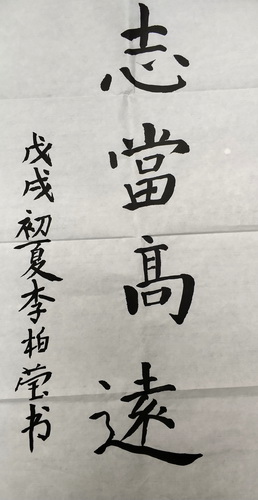 志當高遠
戊戌初夏李柏莹书